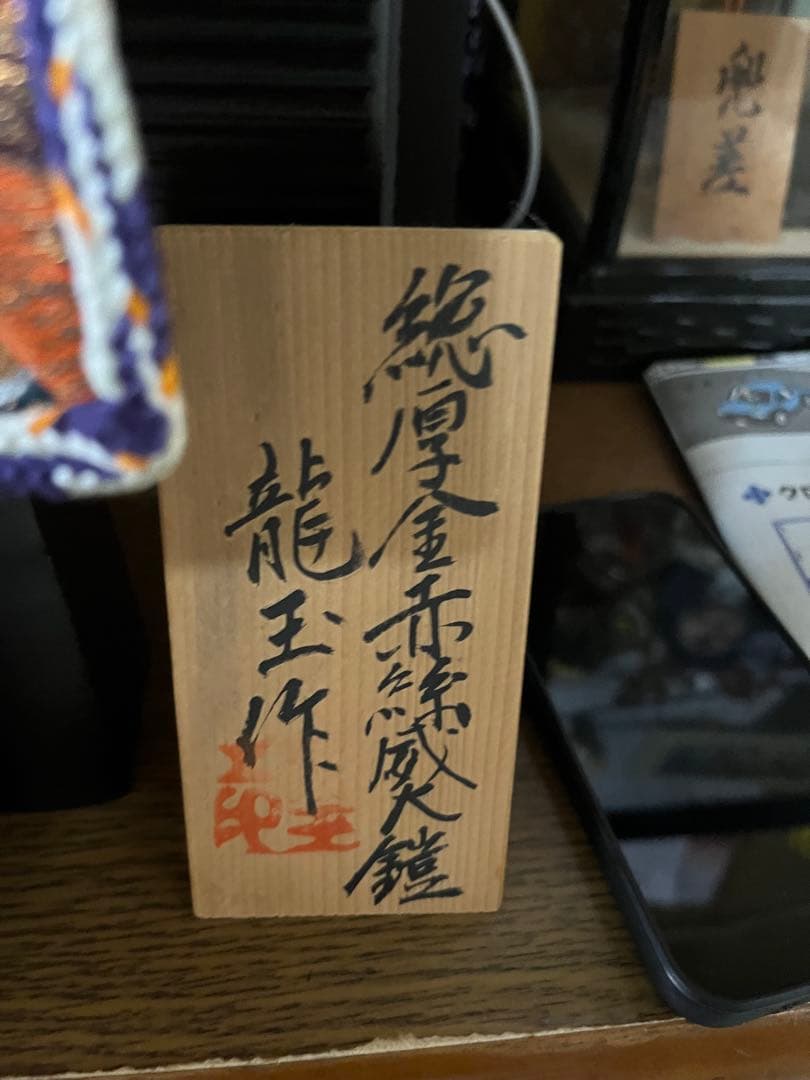 総厚金赤絲威大鎧
龍玉作
兜差
クロ